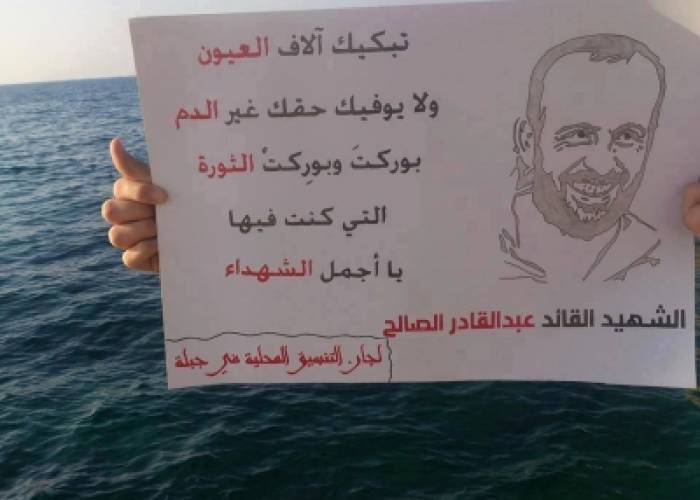 تبكيك آلاف العيون
ولا يوفيك حقك غير الدم
بوركتَ وبورِكتْ الثورة
التي كنت فيها
يا أجمل الشهداء
الشهيد القائد عبدالقادر الصالح
لجان التنسيق المحلية في جبلة